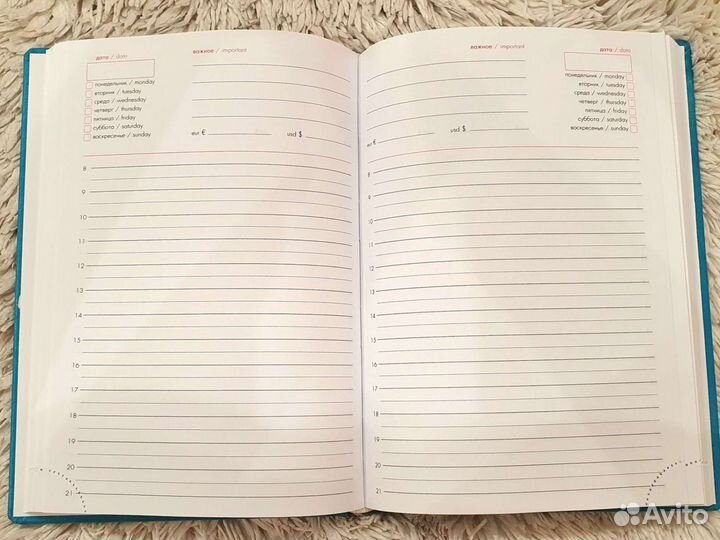 дата / data
важное / important
понедельник / monday
вторник / tuesday
среда / wednesday
четверг / thursday
пятница / friday
суббота / saturday
воскресенье / sunday
eur € usd $
8
9
10
11
12
13
14
15
16
17
18
19
20
21
важное / important
дата / data
понедельник / monday
вторник / tuesday
среда / wednesday
четверг / thursday
пятница / friday
суббота / saturday
воскресенье / sunday
eur € usd $
8
9
10
11
12
13
14
15
16
17
18
19
20
21
Avito